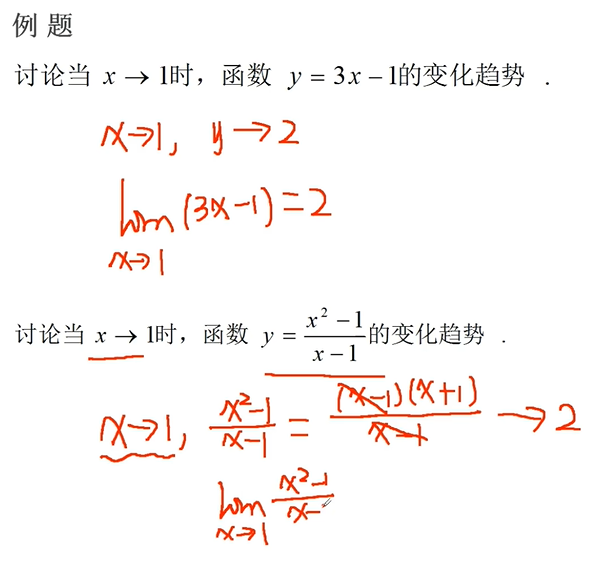 例题
讨论当 x → 1时，函数 y = 3x − 1的变化趋势 .
x→1, y→2
lim (3x−1) = 2
x→1
讨论当 x → 1时，函数 y = (x² − 1)/(x − 1) 的变化趋势 .
x→1, (x²−1)/(x−1) = (x−1)(x+1)/(x−1) → 2
lim (x²−1)/(x−
x→1